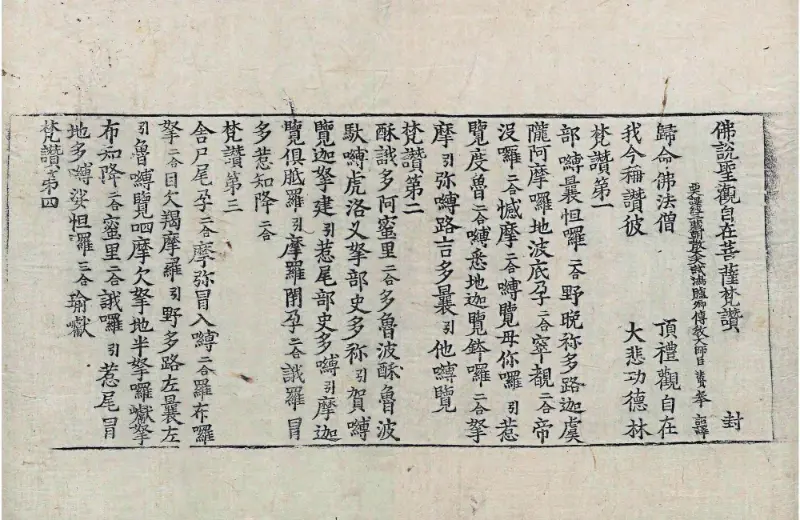 佛說聖觀自在菩薩梵讚 封
西譯經三藏朝散大夫試鴻臚卿傳教大師臣法賢奉 詔譯
歸命佛法僧 頂禮觀自在
我今稱讚彼 大悲功德林
梵讚第一
部嚩曩怛囉二合野晚祢多路迦虞
隴阿摩囉地波底孕二合窣覩二合帝
沒囉二合憾摩二合嚩覽母你囉引惹
覽度魯二合嚩悉地迦覽鉢囉二合拏
摩引弥嚩路吉多曩引他嚩覽
梵讚第二
酥誐多阿蜜里二合多魯波酥魯波
馱嚩虎洛叉拏部史多祢引賀嚩
覽迦拏建引惹尾部史多嚩引摩迦
覽俱胝羅引摩羅閉孕二合誐羅冒
多惹知降二合
梵讚第三
舍尸尾孕二合摩弥冒入嚩二合羅布囉
拏二合目欠羯摩羅引野多路左曩左
引魯嚩覽呬摩欠拏地半拏囉巘拏
布知降二合蜜里二合誐囉引惹尾冒
地多嚩娑怛囉三合瑜巘
梵讚第四